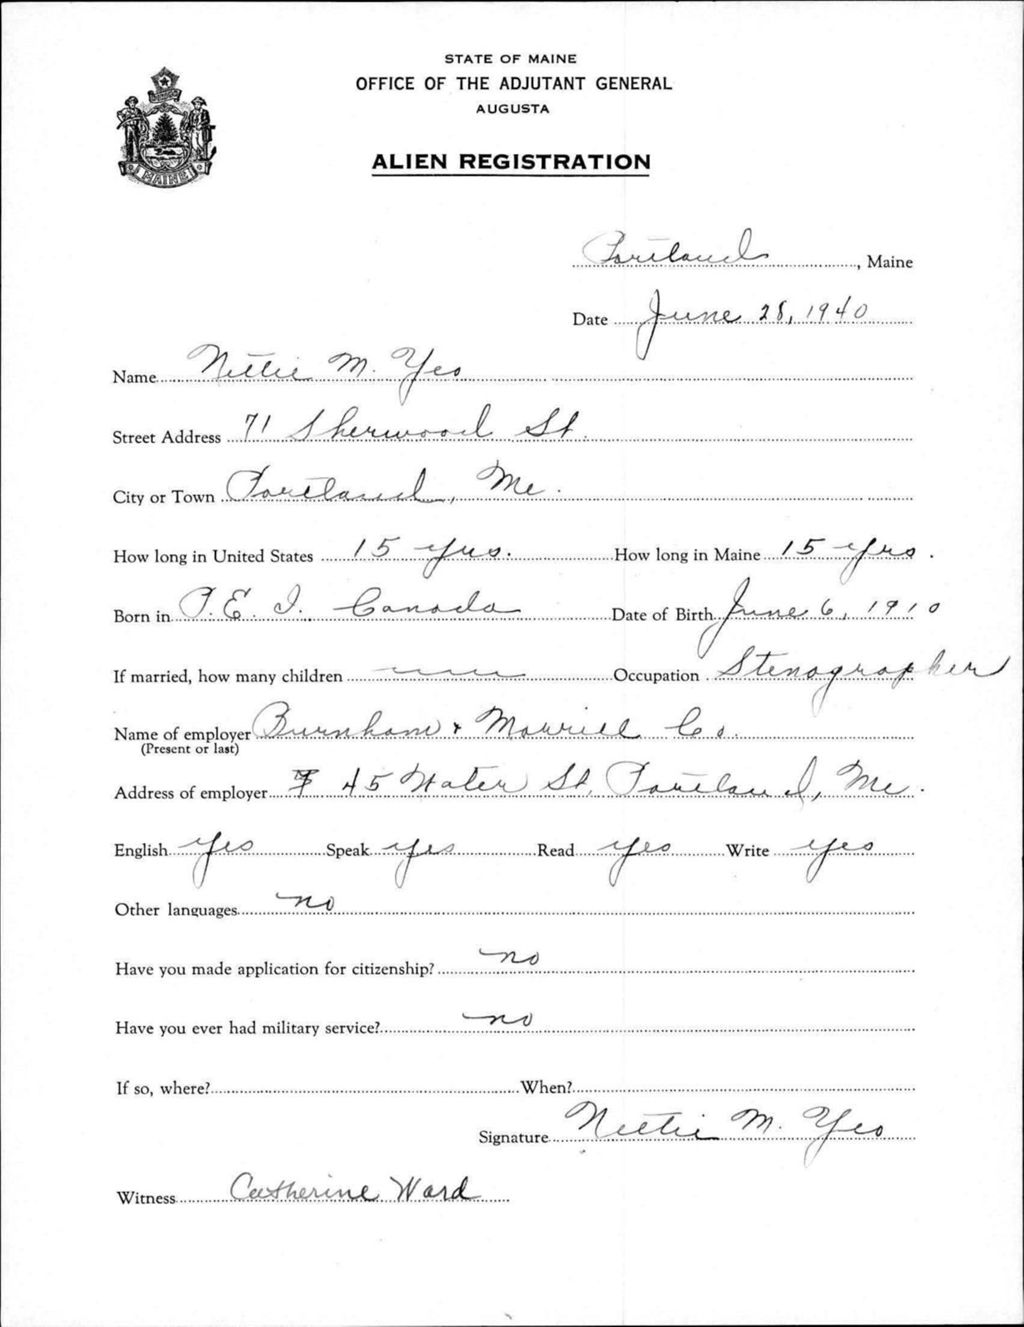 STATE OF MAINE
OFFICE OF THE ADJUTANT GENERAL
AUGUSTA
ALIEN REGISTRATION
Portland, Maine
Date June 28, 1940
Name Nettie M. Yeo
Street Address 71 Sherwood St.
City or Town Portland, Me.
How long in United States 15 yrs. How long in Maine 15 yrs.
Born in P. E. I. Canada Date of Birth June 6, 1910
If married, how many children Occupation Stenographer
Name of employer Burnham & Morrill Co.
(Present or last)
Address of employer 45 Water St, Portland, Me.
English yes Speak yes Read yes Write yes
Other languages no
Have you made application for citizenship? no
Have you ever had military service? no
If so, where? When?
Signature Nettie M. Yeo
Witness Catherine Ward